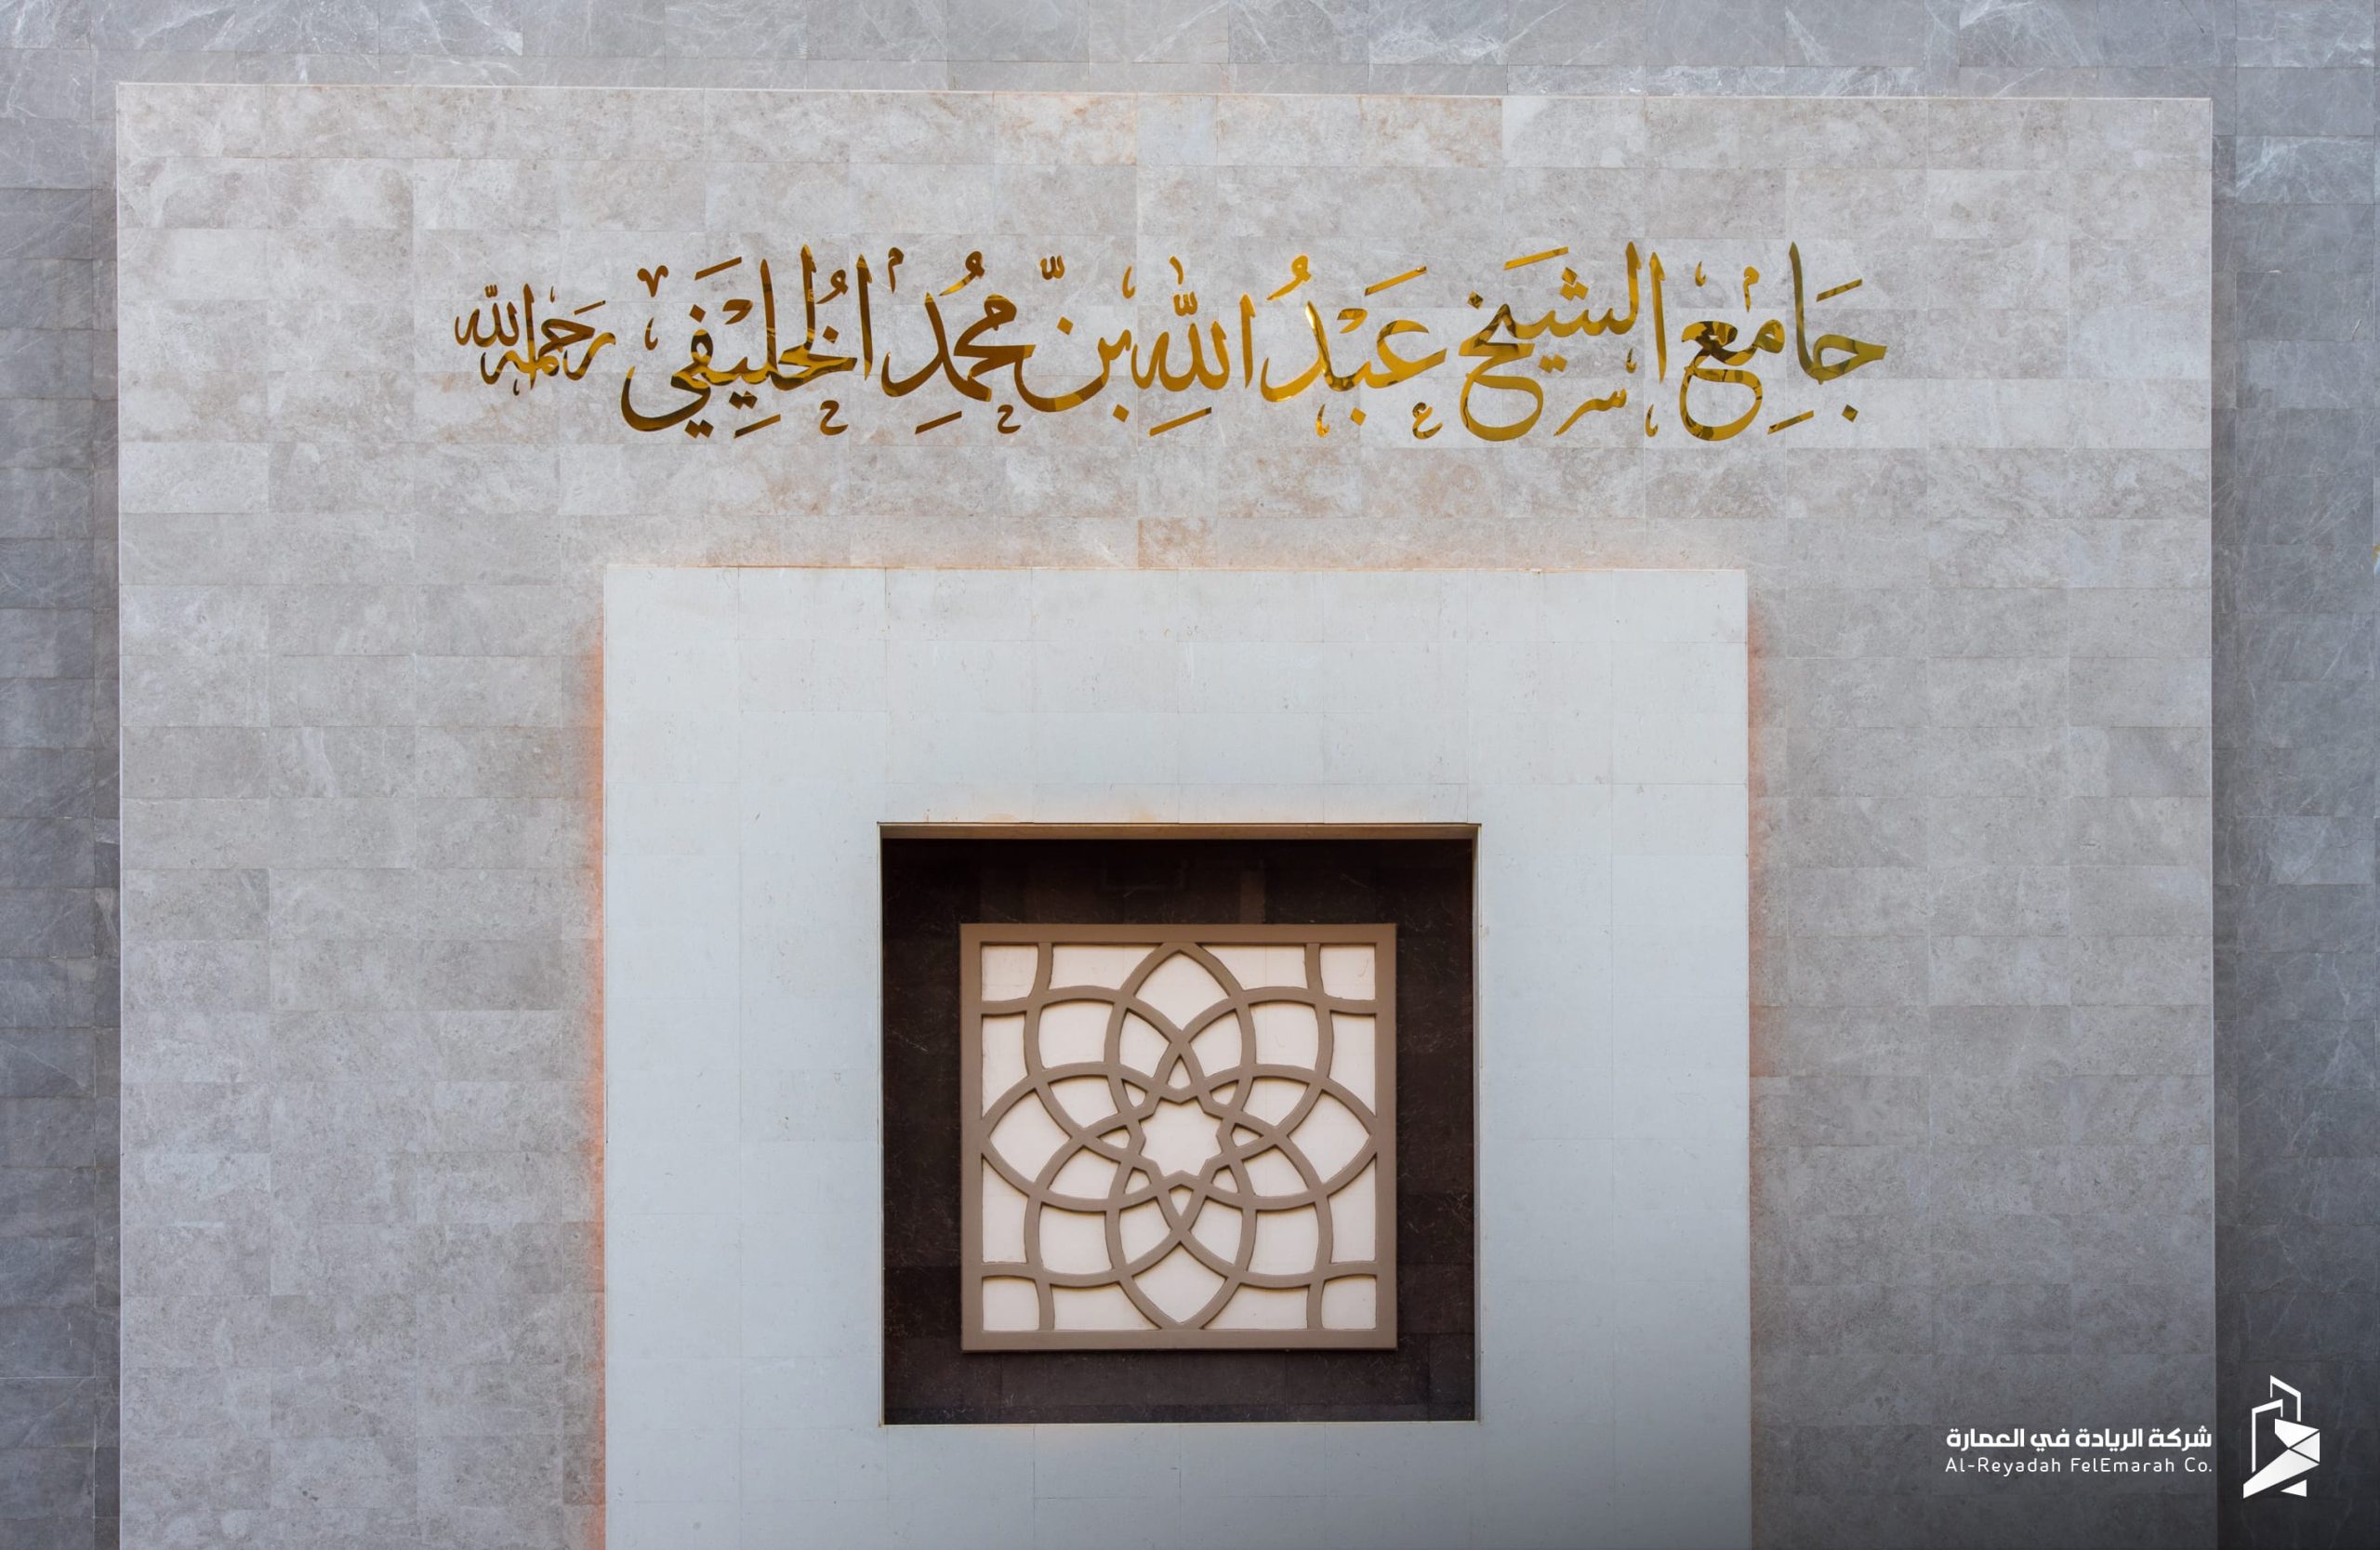 جَامِع الشَيْخ عَبْدُ اللهِ بنّ مُحمدِ الخُلِيْفَي رَحمه الله
شركة الريادة في العمارة
Al-Reyadah FelEmarah Co.